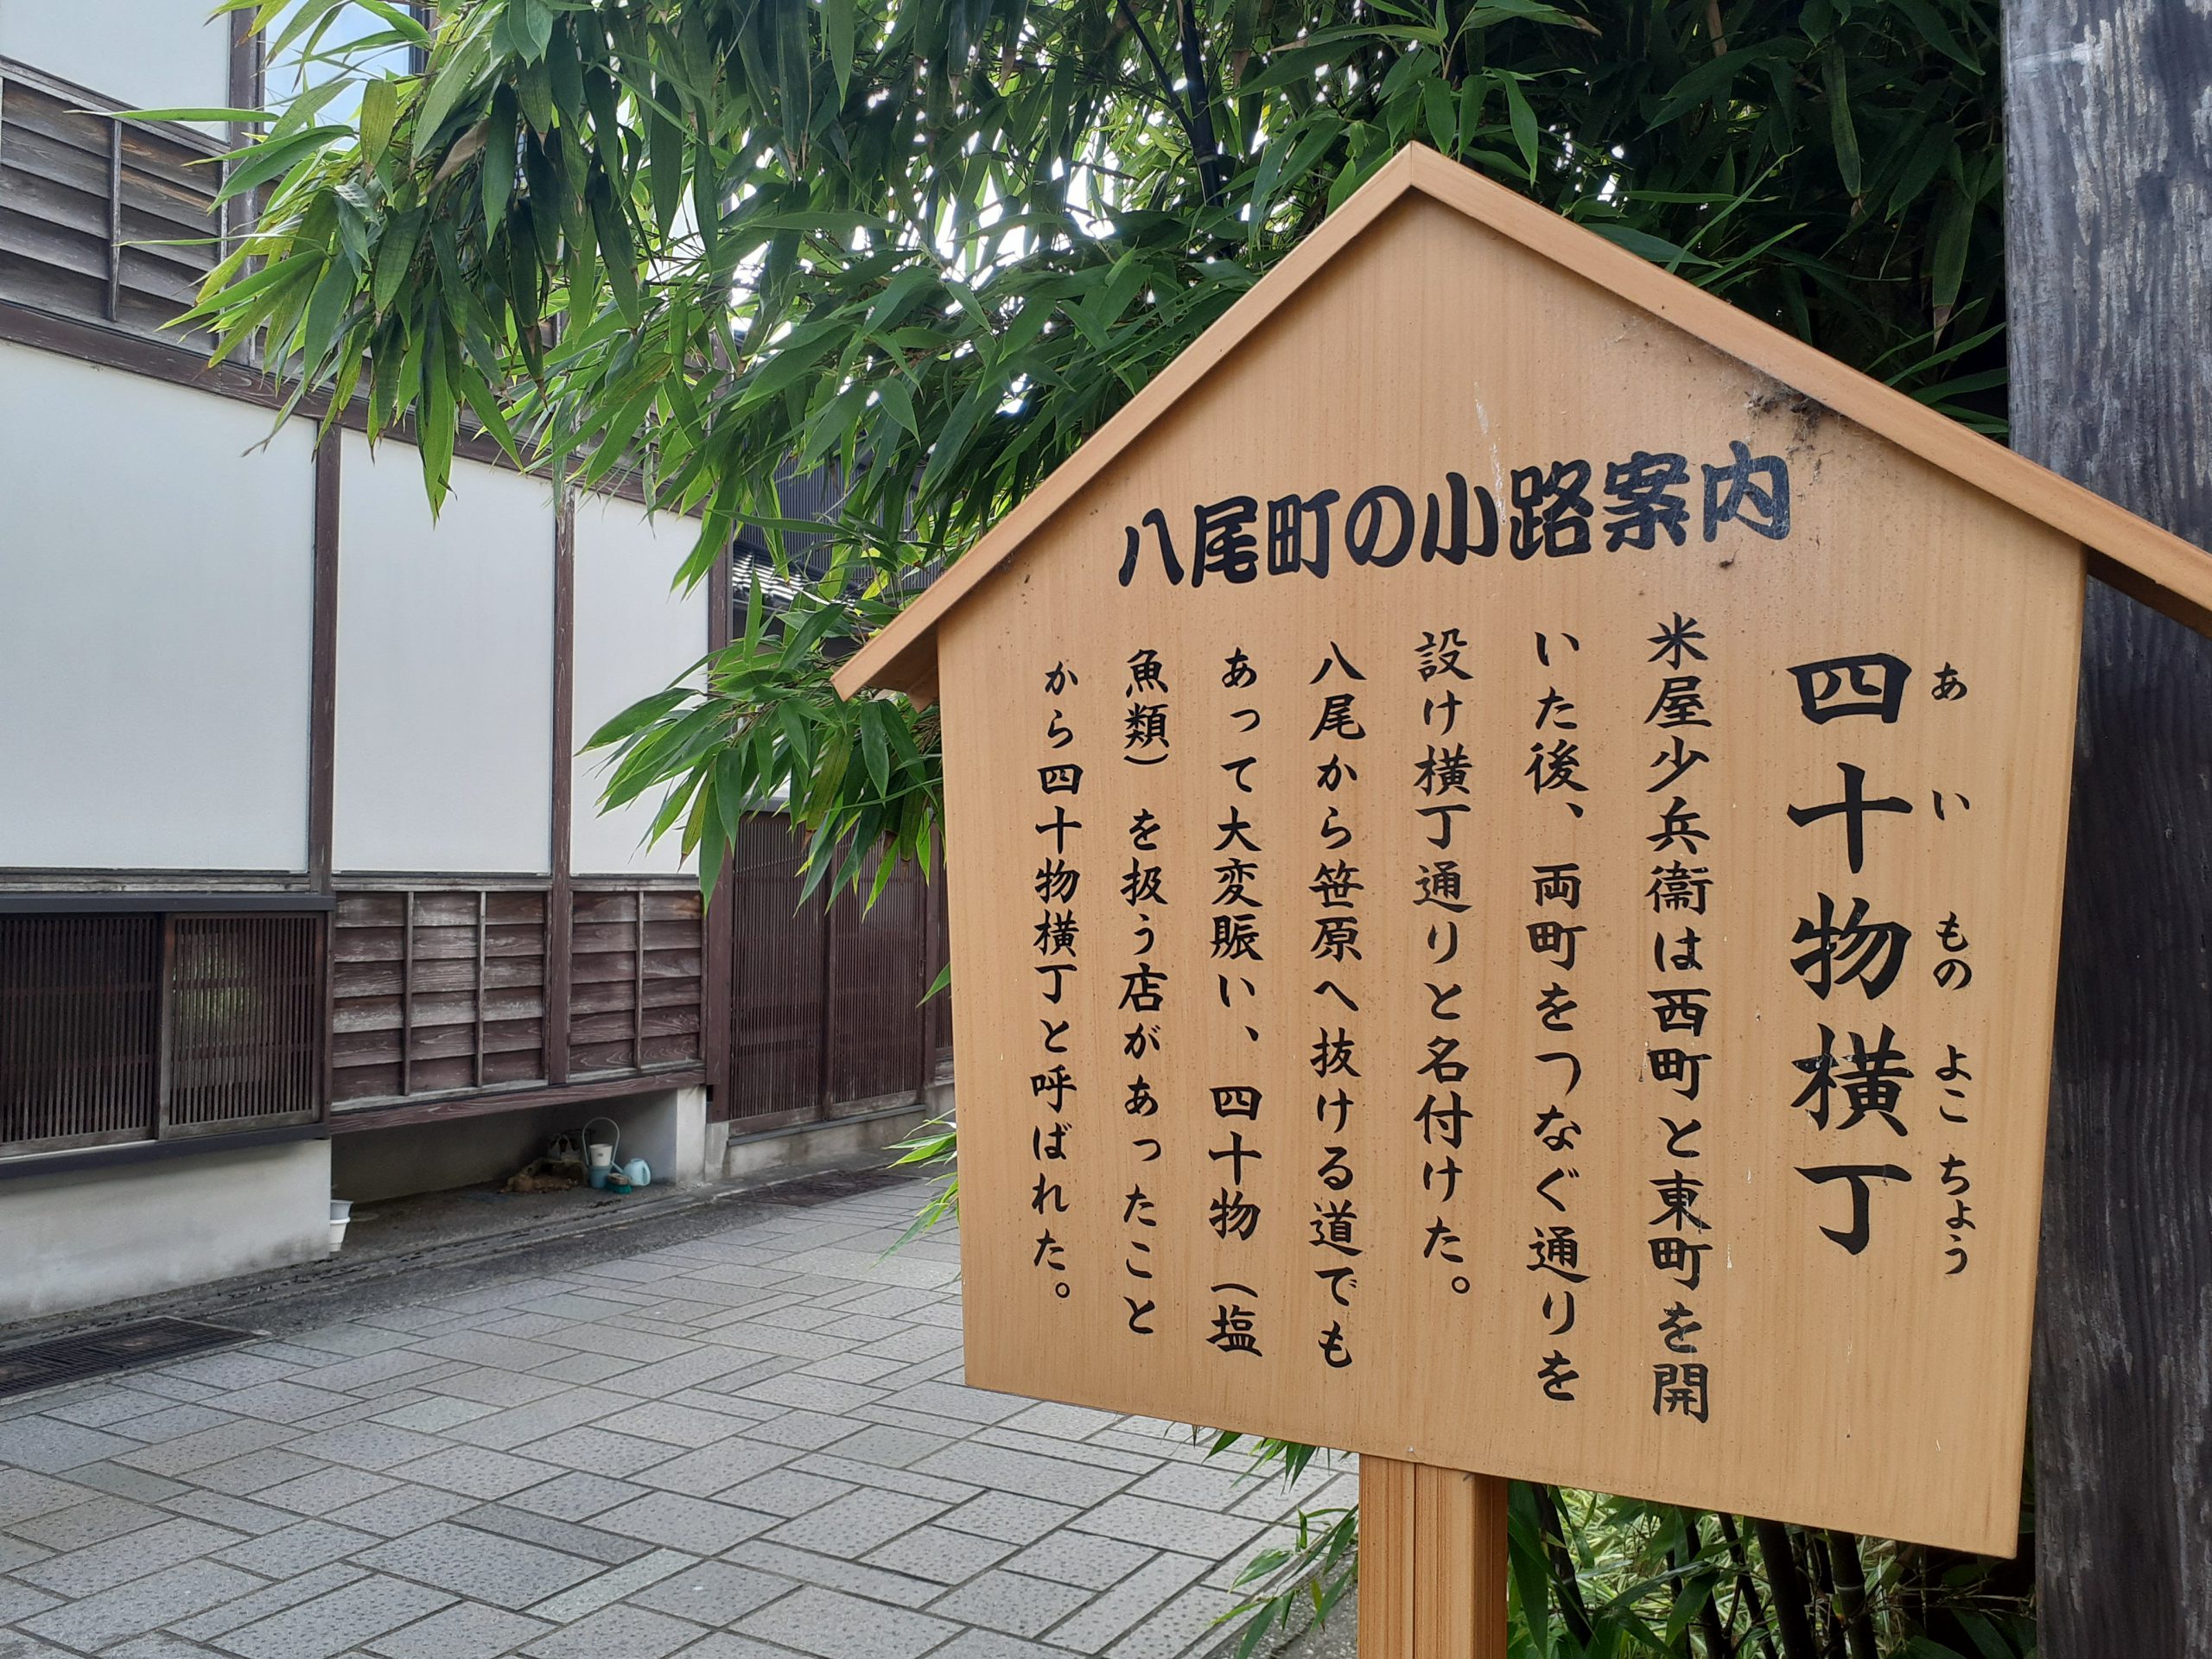 八尾町の小路案内
四十物横丁
あいものよこちょう
米屋少兵衞は西町と東町を開
いた後、両町をつなぐ通りを
設け横丁通りと名付けた。
八尾から笹原へ抜ける道でも
あって大変賑い、四十物（塩
魚類）を扱う店があったこと
から四十物横丁と呼ばれた。